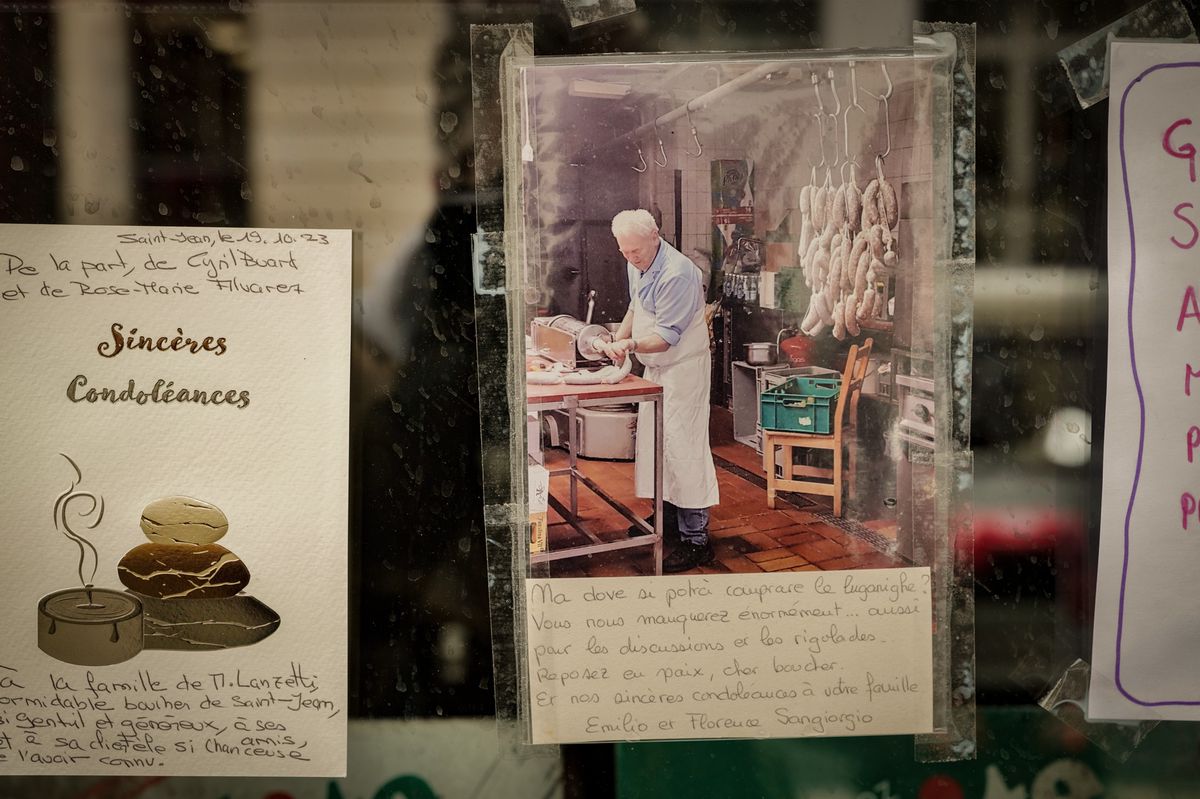 Saint-Jean, le 19.10.23
De la part, de Cyril Buard
et de Rose-Marie Alvarez
Sincères
Condoléances
à la famille de M. Lanzetti,
formidable boucher de Saint-Jean,
si gentil et généreux, à ses
amis,
et à sa clientèle si chanceuse
l'avoir connu.
Ma dove si potrà comprare le luganighe?
Vous nous manquerez énormément... aussi
pour les discussions et les rigolades..
Reposez en paix, cher boucher.
Et nos sincères condoléances à votre famille
Emilio et Florence Sangiorgio
G
S
A
M
P
P